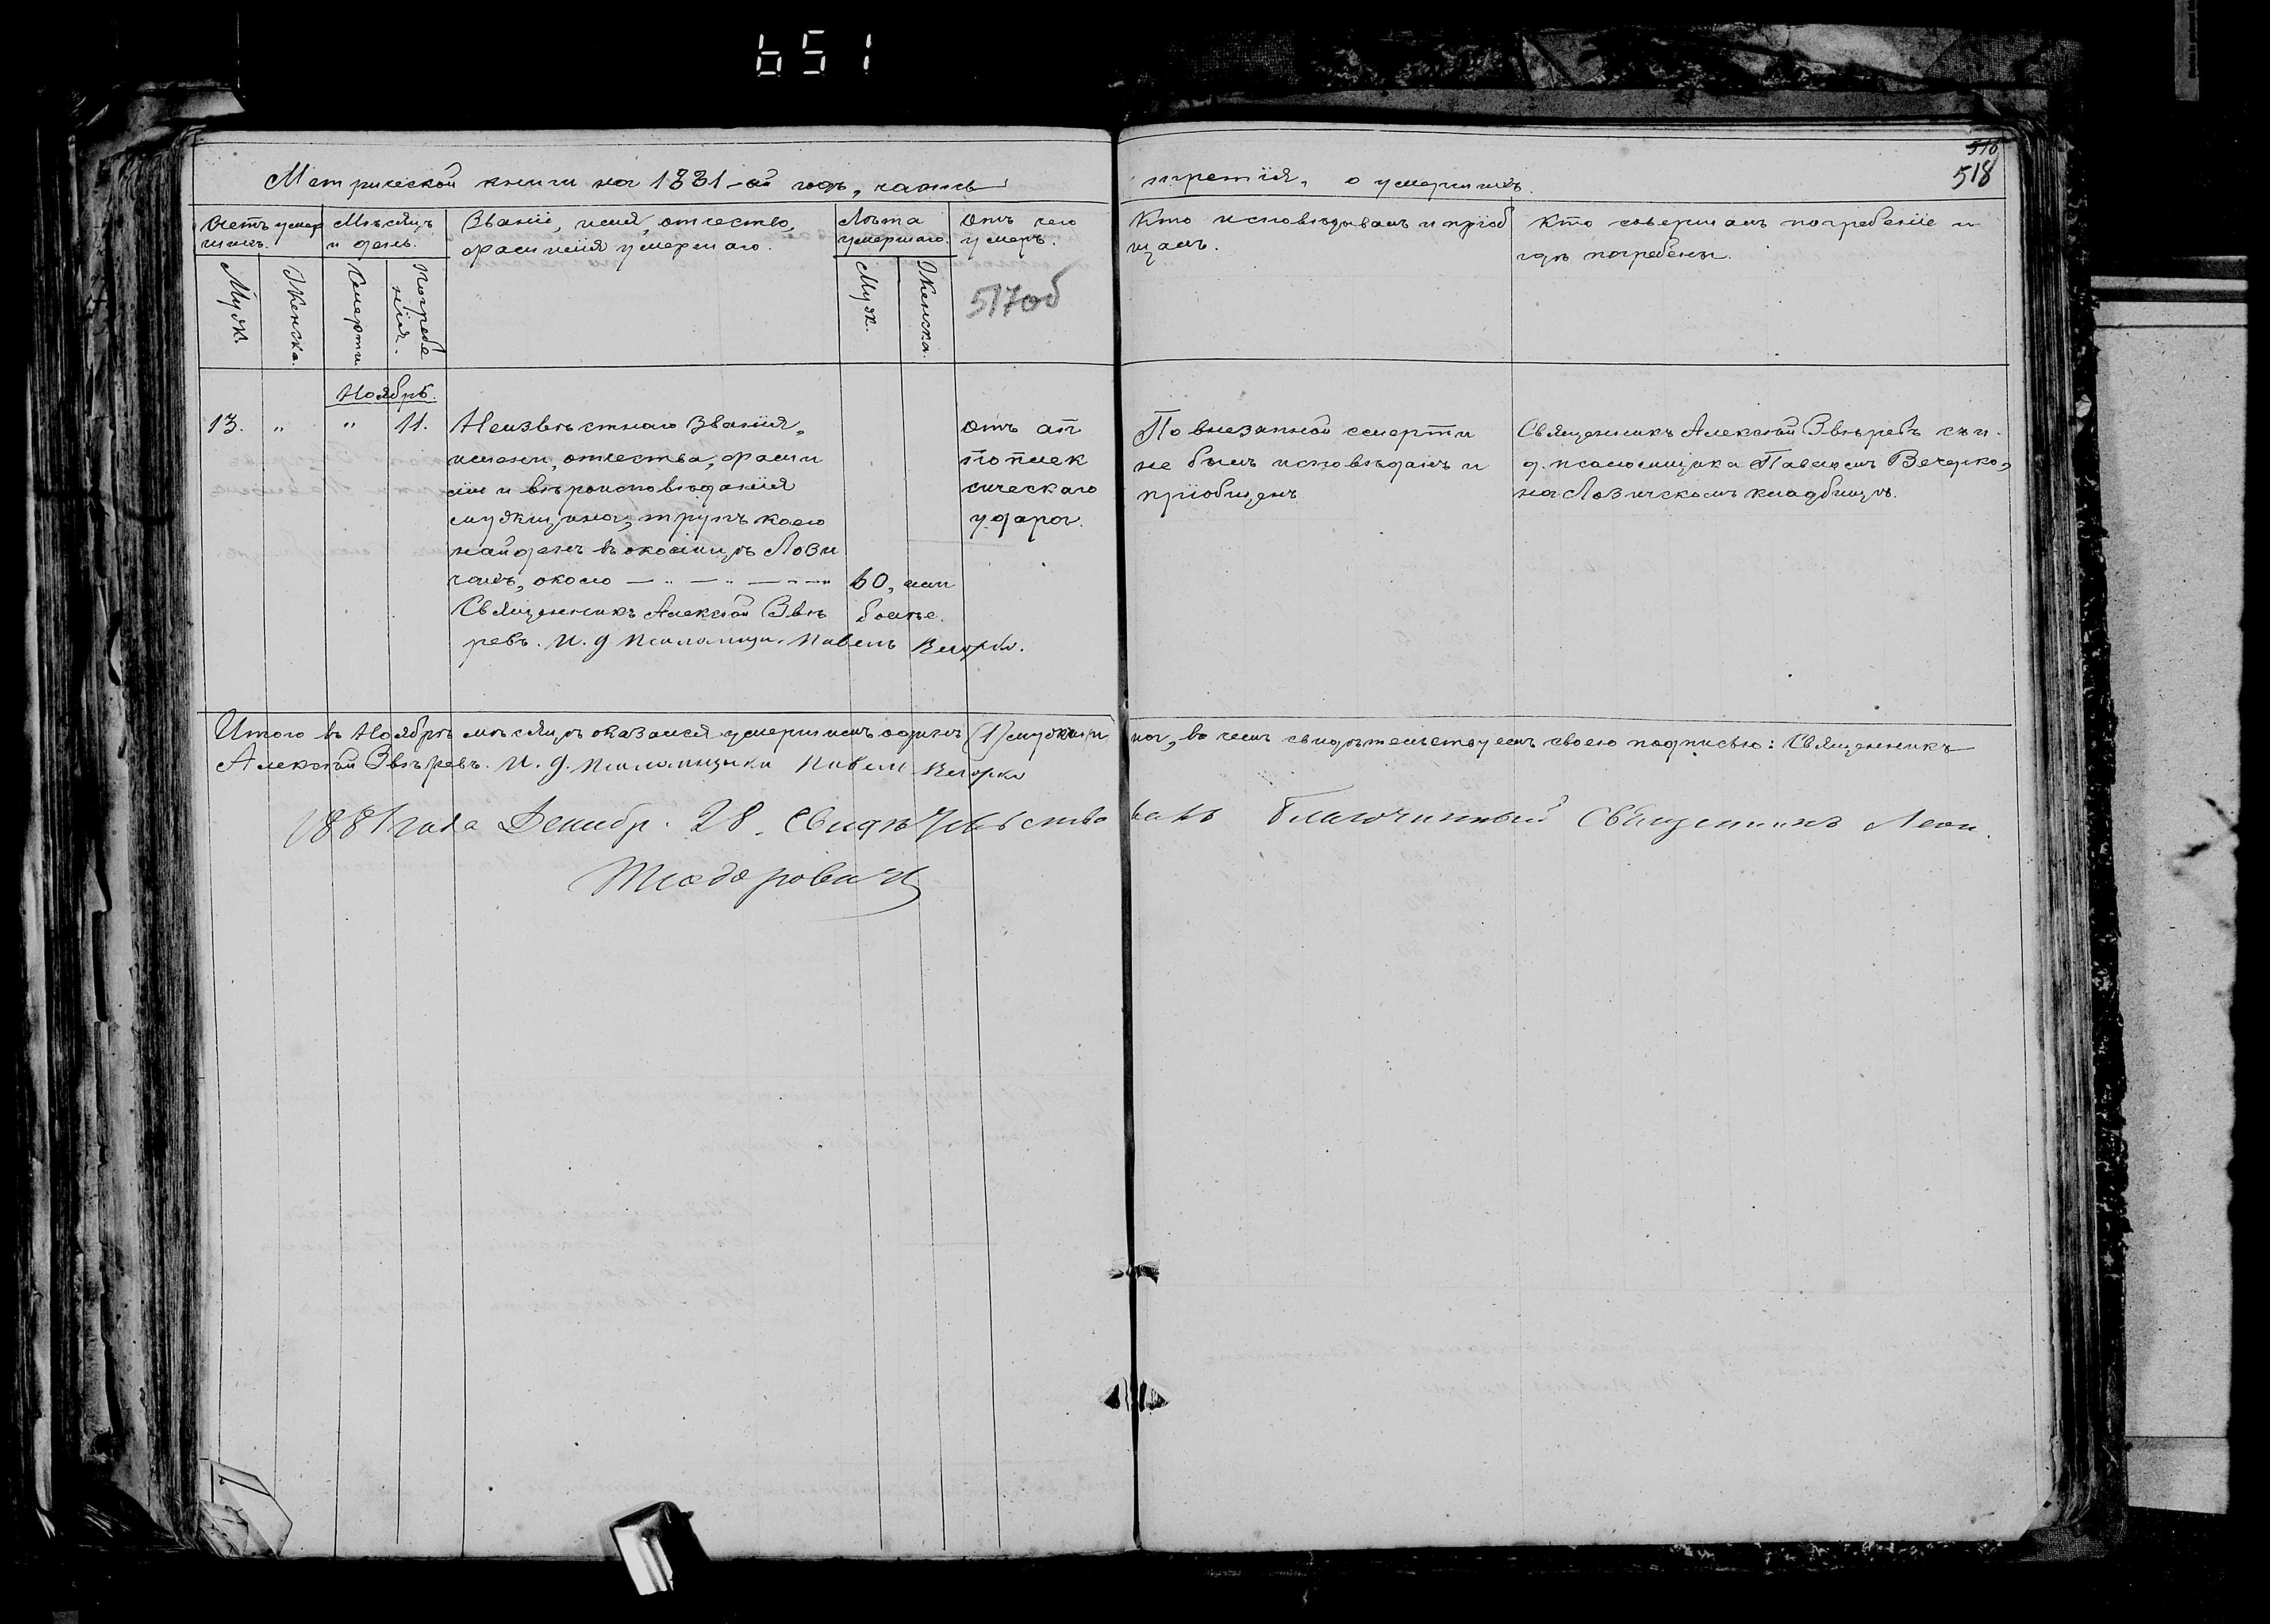 651
Метрической книги на 1881-ый годъ, часть третія, о умершихъ.
518
Счетъ умер
шихъ.
Мѣсяцъ
и день.
Званіе, имя, отчество,
фамилія умершаго.
Лѣта
умершаго.
Отъ чего
умеръ.
Кто исповѣдывалъ и пріоб
щалъ.
Кто совершалъ погребеніе и
гдѣ погребены.
Муж.
Женска.
Смерти.
Погребе
нія.
Муж.
Женска.
517об
Ноябрь.
13. " " 11.
Неизвѣстнаго званія,
имени, отчества, фами
ліи и вѣроисповѣданія
мужщина, трупъ коего
найденъ въ околицѣ Лози
чахъ, около — " — " — " —
Священникъ Алексій Звѣ
ревъ. И. д. Псаломщи. Павелъ Вечорко.
60, или
болѣе.
Отъ ап
поплек
сическаго
удара.
По внезапной смерти
не былъ исповѣданъ и
пріобщенъ
Священникъ Алексій Звѣревъ съ и.
д. псаломщика Павломъ Вечорко,
на Лозичскомъ кладбищѣ.
Итого въ Ноябрѣ мѣсяцѣ оказался умершимъ одинъ (1) мужщи на, въ чемъ свидѣтельствуемъ своею подписью: Священникъ
Алексій Звѣревъ. И. д. Псаломщика Павелъ Вечорко
1881 года Декабр. 28. Свидѣтельство валъ Благочинный Священникъ Леон.
Теодоровичъ